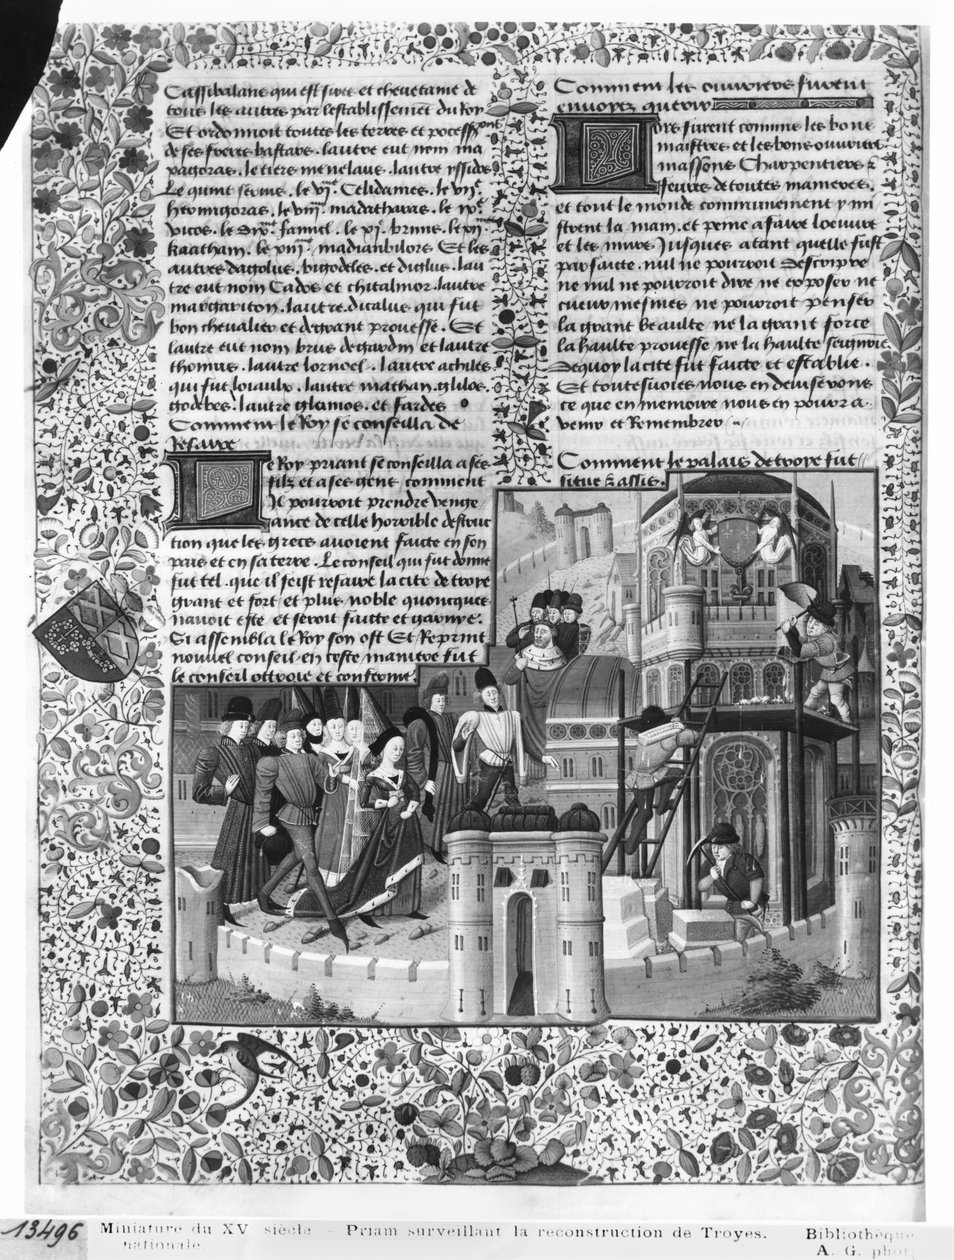 Cassibalane qui est frere et thevetame de
tous les autres par lestablissemet du Roy
Et ordonnoit toutes les terres et
de ses freres bastars. lautre eut nom ma
le tiers menelaus. lautre
Le quint le vij. Celidames. le viij
hermagoras. le viiij. madathavas. le
vitos. le le xj. brune. le xij
kaatham. le madianbilore Et les
autres dagolus. bugodeles. et dulus. lau
tre eut nom Cados et chitalmor. lautre
margariton. lautre ditalus qui fut
bon chevalier et de grant prouesse. Et
lautre eut nom brus de gardin et lautre
thomas. lautre lornoel. lautre achiles
qui fut lautre mathan. glulos.
godebes. lautre glamos. et fardes
Comment le Roy se conseilla de
Reffaire
Le Roy priant se conseilla a ses
filz et a ses gens comment
Il pourroit prendre venge
ance de celle horrible destruc
tion que les grecs avoient faicte en son
pais et en sa terre. Le conseil qui fut donne
fut tel. que il feist refaire la cite de troye
grant et fort et plus noble quoncques
navoit este et seroit faitte et garnye.
Si assembla le Roy son ost Et Reprint
nouvel conseil. en ceste maniere fut
le conseil ottroie et conferme.
Comment les ouvriers furent
envoyez querir
Ors furent comme les bons
maistres et les bons ouvriers
massons Charpentiers &
de toutes manieres.
et tout le monde communement y mi
strent la main. et peine a faire loeuvre
et les murs Jusques atant quelle fust
parfaitte. nul ne pourroit descripre
ne nul ne pourroit dire ne exposer ne
cueur mesmes ne pourroit penser
la grant beaulte ne la grant force
la haulte prouesse ne la haulte seignorie
de quoy la cite fut faitte et establie.
Et touteffoies nous en deviserons
ce que en memoire nous en pourra
venir et Remembrer
Comment le palais de troye fut
situe & assis.
13496
Miniature du XV siècle - Priam surveillant la reconstruction de Troyes. Bibliothèque
nationale. A. G. phot.